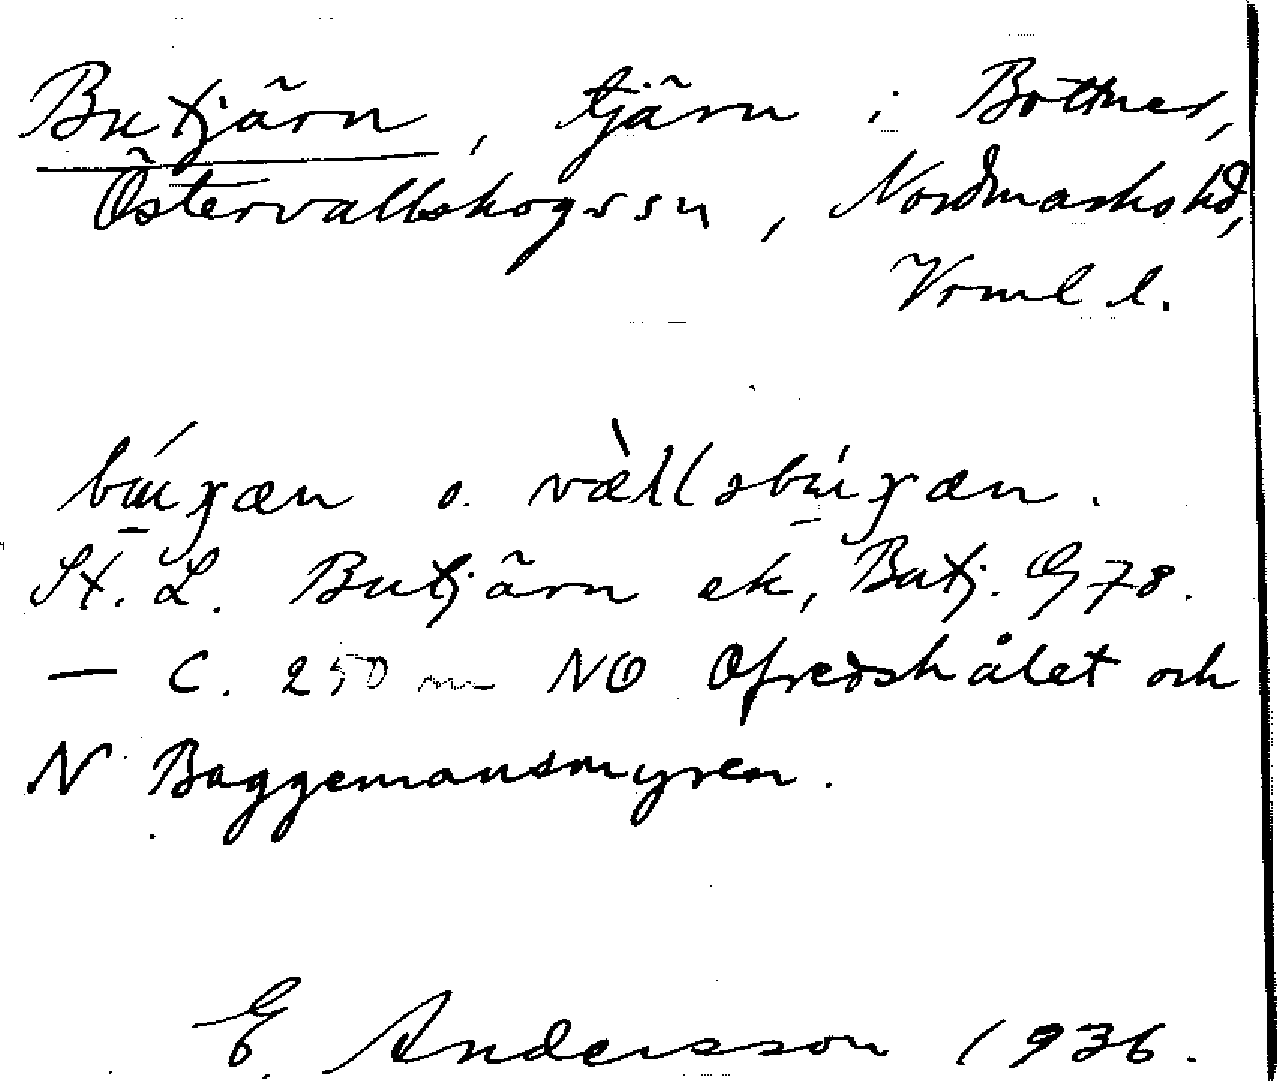 Butjärn, tjärn i Bottner,
Östervallskogs sn, Nordmarks hd,
Vrml l.
o.
St. L. Butjärn ek, Butj. G 78.
— C. 250 m NO Ofredshålet och
N Baggemansmyren.
E Andersson 1936.